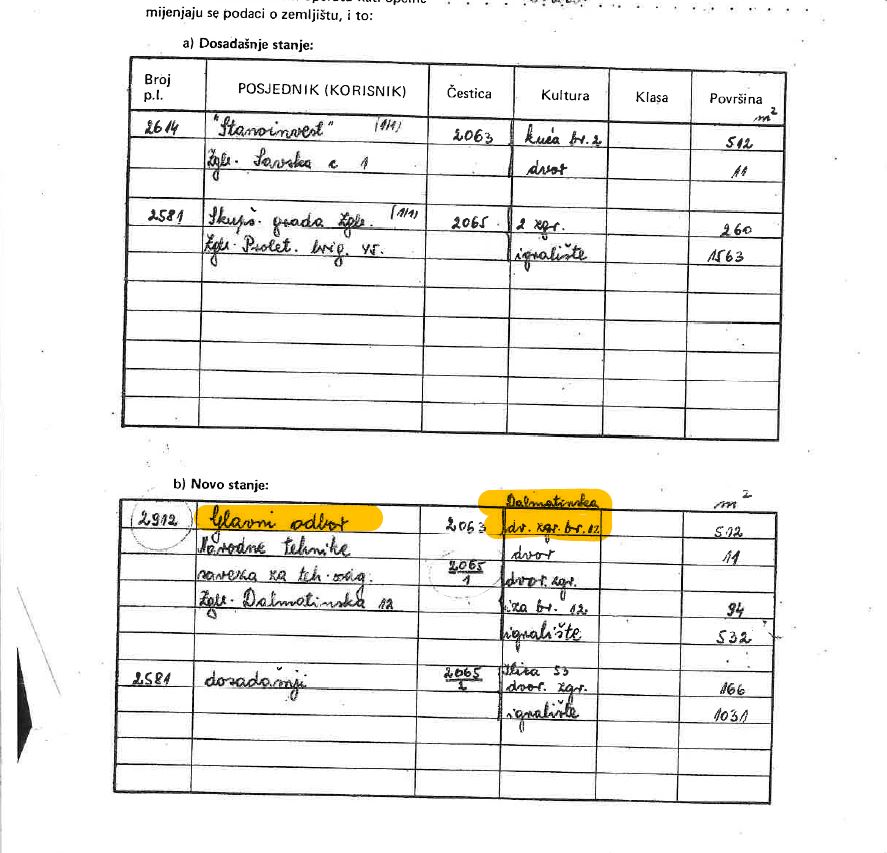 mijenjaju se podaci o zemljištu, i to:
a) Dosadašnje stanje:
Broj p.l. POSJEDNIK (KORISNIK) Čestica Kultura Klasa Površina m²
2614 "Stanoinvest" (1/1) 2063 kuća br. 2 512
Zgb. Savska c 1 dvor 11
2581 Skupš. grada Zgb. (1/1) 2065 2 zgr. 260
Zgb. Prolet. brig. 45. igralište 1563
b) Novo stanje:
Dalmatinska m²
2912 Glavni odbor 2063 dv. zgr. br. 12 512
Narodne tehnike dvor 11
saveza za teh. odg. 2065/1 dvor. zgr.
Zgb. Dalmatinska 12 iza br. 12. 94
igralište 532
2581 dosadašnji 2065/2 Ilica 53
dvor. zgr. 166
igralište 1031